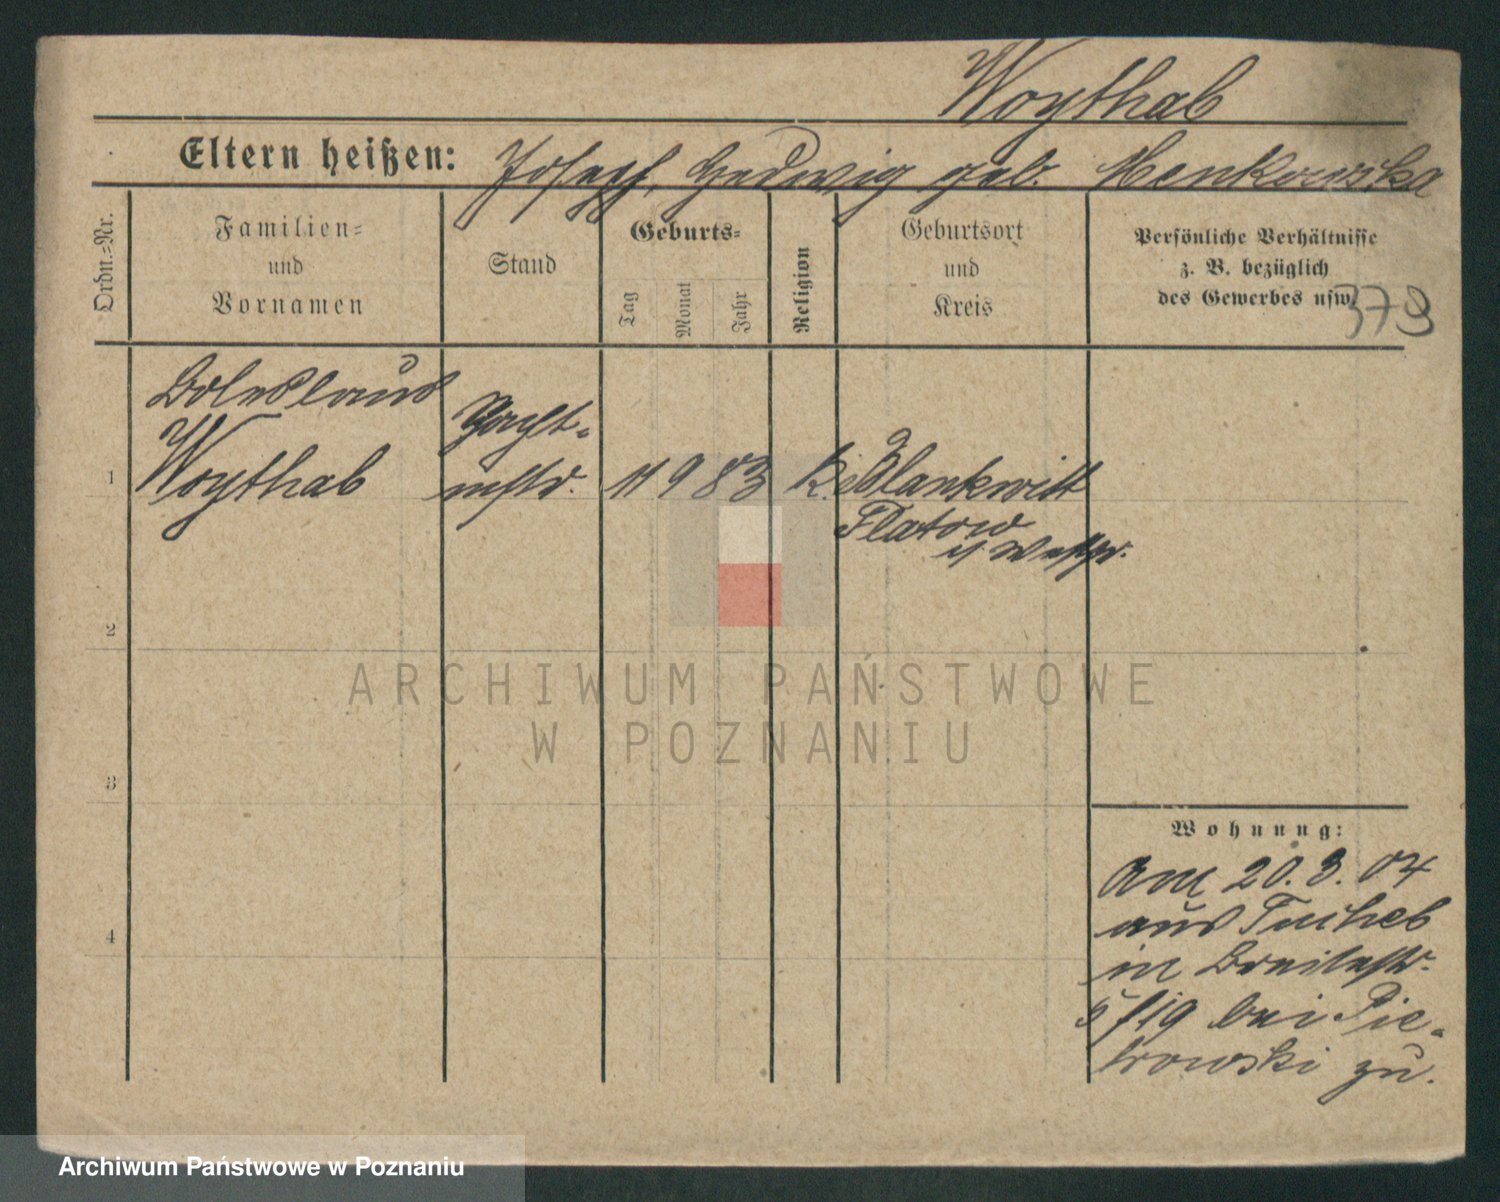 Woythab
Eltern heißen: Joseph, Hedwig geb. Menkowska
Ordn.-Nr.
Familien-
und
Vornamen
Stand
Geburts-
Tag
Monat
Jahr
Religion
Geburtsort
und
Kreis
Persönliche Verhältnisse
z. B. bezüglich
des Gewerbes usw.
379
Boleslaus
Woythab
1
11 9 83
Blankwitt
Flatow
Westpr.
2
ARCHIWUM PAŃSTWOWE
W POZNANIU
3
4
Wohnung:
Am 20. 3. 04
aus Tuchel
in Breitestr.
5/19 bei Pie-
trowski zu.
Archiwum Państwowe w Poznaniu